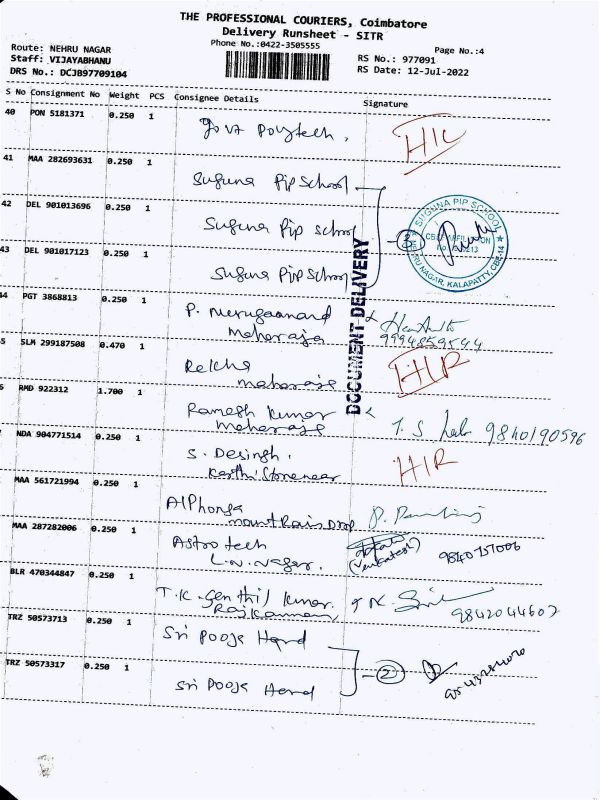 THE PROFESSIONAL COURIERS, Coimbatore
Delivery Runsheet - SITR
Phone No.:0422-3505555
Page No.:4
Route: NEHRU NAGAR
Staff: VIJAYABHANU
DRS No.: DCJB97709104
RS No.: 977091
RS Date: 12-Jul-2022
S No Consignment No Weight PCS Consignee Details Signature
40 PON 5181371 0.250 1
Govt Polytech,
41 MAA 282693631 0.250 1
Suguna Pip School
42 DEL 901013696 0.250 1
Suguna Pip school
43 DEL 901017123 0.250 1
Suguna Pip School
3
SUGUNA PIP SCHOOL
CBSE AFFILIATION
NEHRU NAGAR, KALAPATTY, CBE-14
DOCUMENT DELIVERY
44 PGT 3868813 0.250 1
P.
maharaja
9994859544
5 SLM 299187508 0.470 1
Rekha
maharaja
6 RMD 922312 1.700 1
Ramesh Kumar
maharaja
9840190596
NDA 904771514 0.250 1
S. Desingh.
MAA 561721994 0.250 1
Alphonsa
mount Rain Drop
MAA 287282006 0.250 1
Astro tech
L.N. Nagar.
(Venkatesh)
9840757006
BLR 470344847 0.250 1
T.K. Senthil Kumar.
Rajkannan
9842044607
TRZ 50573713 0.250 1
Sri Pooja
TRZ 50573317 0.250 1
Sri Pooja
2